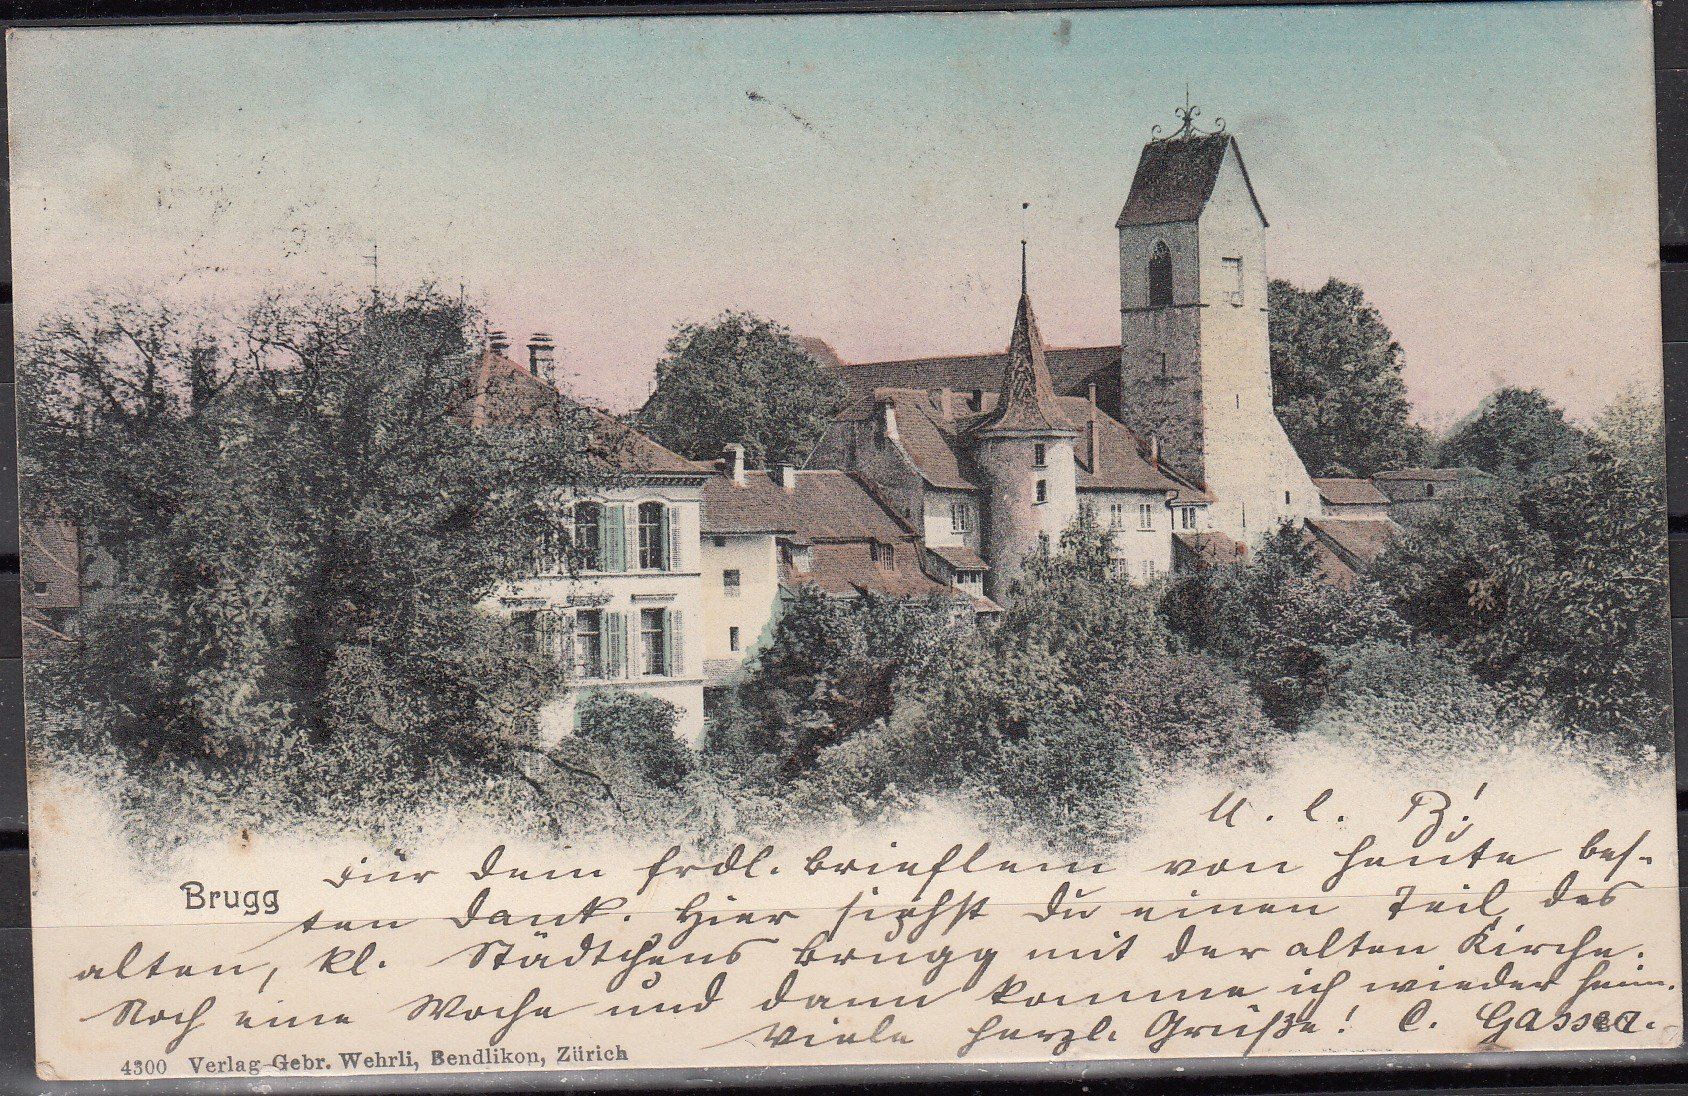 M. l. B.!
Für dein frdl. Brieflein von heute bes-
Brugg
ten Dank. Hier siehst Du einen Teil des
alten, kl. Städtchens Brugg mit der alten Kirche.
Noch eine Woche und dann komme ich wieder heim.
Viele herzl. Grüße! C. Gasser.
4300 Verlag Gebr. Wehrli, Bendlikon, Zürich